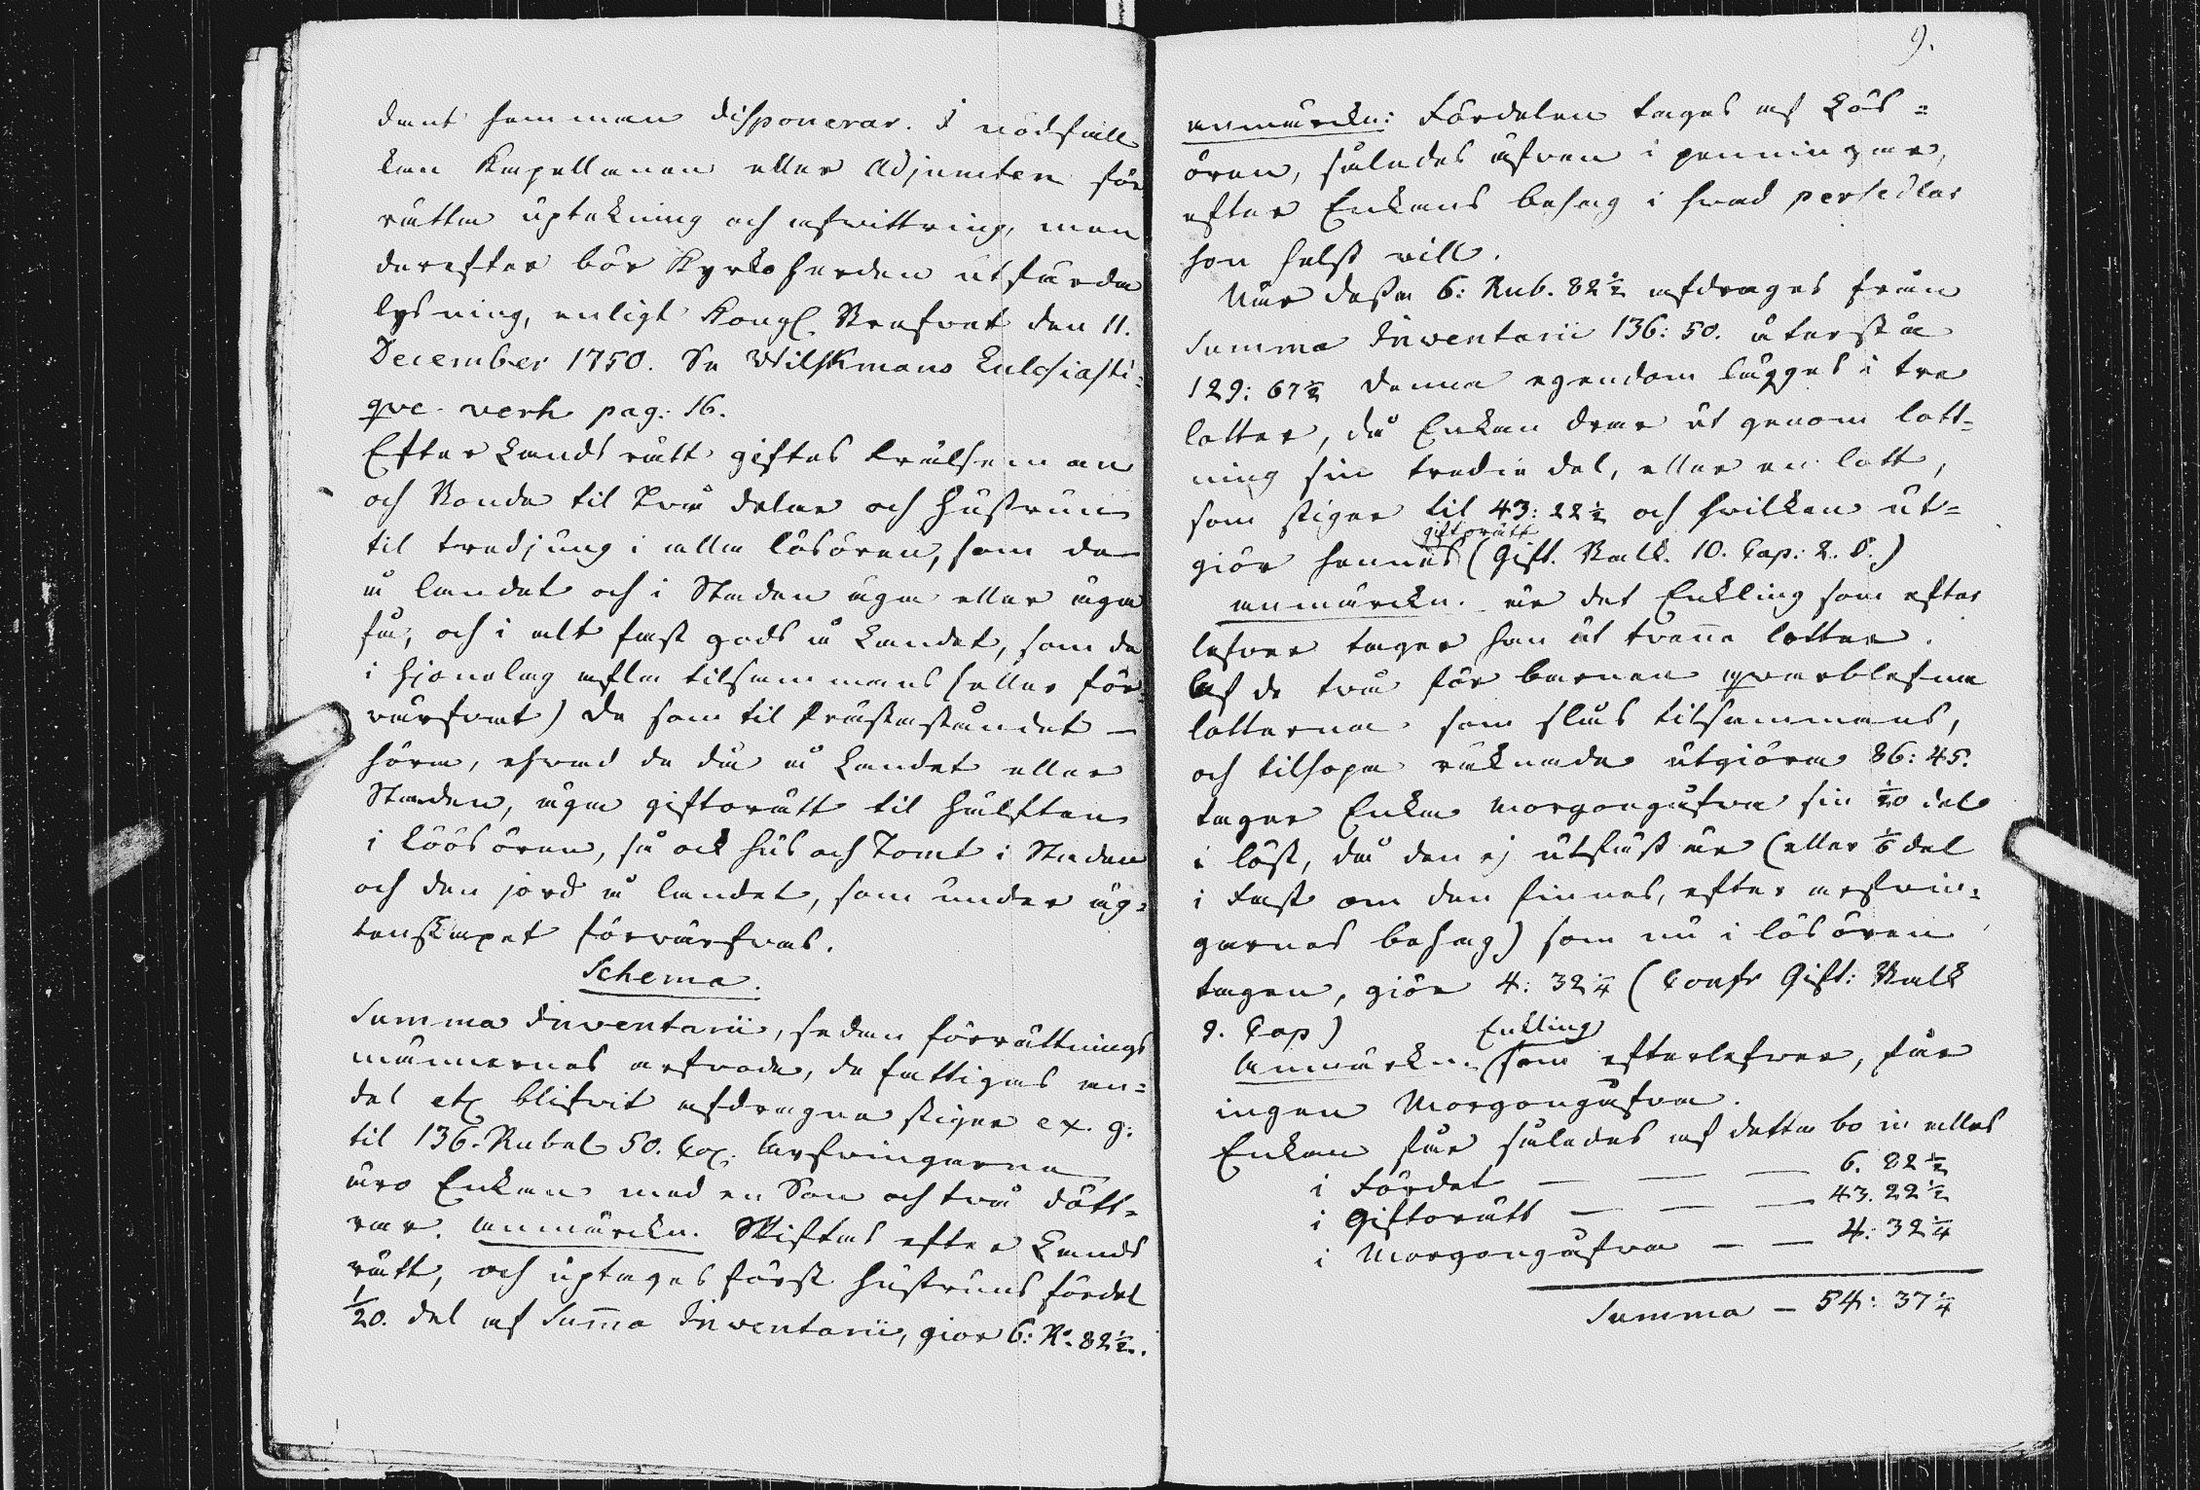 dant hemman disponerar. I nödfall
kan Kapellanen eller Adjuncten för
rätta uptekning och afwittring, men
derefter bör Kyrkoherden utfärda
lysning, enligt Kongl. Brefvet den 11.
December 1750. Se Wilskmans Eulesiasti-
qve-verk pag. 16.
Efter Lands rätt giftes Frälseman
och Bonde til två delar och hustrun
til tredjung i alla lösören, som de
å landet och i Staden äga eller äga
få, och i alt fast gods å Landet, som de
i hjonelag afla tilsammans (eller för-
värfvat) De som til Prästeståndet
höra, ehvad de då å Landet eller
Staden, äga giftorätt til hälften
i Löösören, så ock hus och Tomt i Staden
och den jord å landet, som under äg-
tenskapet förvärfvas.
Schema.
Summa Inventarii, sedan förrättnings
männernes arfvode, de fattigas an-
del etc blifvit afdragne stiger ex. g:
til 136. Rubel 50. Cop. Arfvingarne
äro Enkan med en Son och två dött-
rar. Anmärckn. Skiftes efter Lands
rätt, och uptages först hustruns fördel
1/20. del af Suma Inventarii, giör 6: R. 82 1/2.
9.
anmärckn: Fördelen tages af Lös-
ören, således äfven i penningar,
efter Enkans behag i hvad persedlar
hon helst vill.
När dessa 6: Rub. 82 1/2 afdrages från
Summa Inventarii 136: 50. återstå
129: 67 1/2 Denna egendom lägges i tre
lotter, då Enkan drar ut genom lott-
ning sin tredie del, eller en lott,
som stiger til 43: 22 1/2 och hvilken ut-
giör hennes giftorätt (Gift. Balk. 10. Cap: 2. §.)
anmärckn. är det Enkling som efter
lefver tager han ut tvenne lotter.
Af de två för barnen qvarblefne
lotterna som slås tilsammans,
och tilhopa räknade utgiöra 86: 45.
tager Enka morgongåfva sin 1/20 del
i löst, då den ej utfäst är (eller 1/6 del
i Fast om den finnes, efter arfvin-
garnes behag) som nu i lösören
tagen, giör 4: 32 1/4 (Confr Gift: Balk
9. Cap)
Anmärkn. Enkling som efterlefver, får
ingen Morgongåfva.
Enkan får således af detta bo in alles
i Fördel — — — 6. 82 1/2
i Giftorätt — — — 43. 22 1/2
i Morgongåfva — — 4: 32 1/4
Summa — 54: 37 1/4